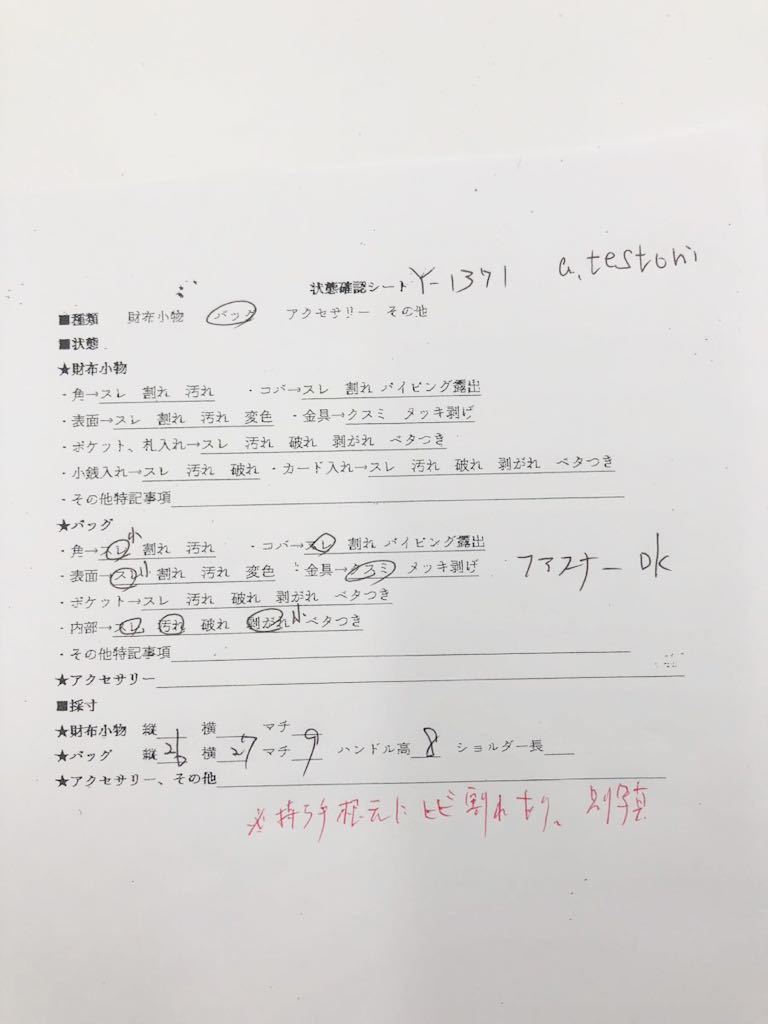 状態確認シート Y-1371 a.testoni
■種類 財布小物 バッグ アクセサリー その他
■状態
★財布小物
・角→スレ 割れ 汚れ ・コバ→スレ 割れ パイピング露出
・表面→スレ 割れ 汚れ 変色 ・金具→クスミ メッキ剥げ
・ポケット、札入れ→スレ 汚れ 破れ 剥がれ ベタつき
・小銭入れ→スレ 汚れ 破れ ・カード入れ→スレ 汚れ 破れ 剥がれ ベタつき
・その他特記事項
★バッグ
・角→スレ小 割れ 汚れ ・コバ→スレ 割れ パイピング露出
・表面→スレ小 割れ 汚れ 変色 ・金具→クスミ メッキ剥げ ファスナー OK
・ポケット→スレ 汚れ 破れ 剥がれ ベタつき
・内部→スレ 汚れ 破れ 剥がれ小 ベタつき
・その他特記事項
★アクセサリー
■採寸
★財布小物 縦 横 マチ
★バッグ 縦26 横27 マチ9 ハンドル高8 ショルダー長
★アクセサリー、その他
※持ち手根元にヒビ割れあり。別写真